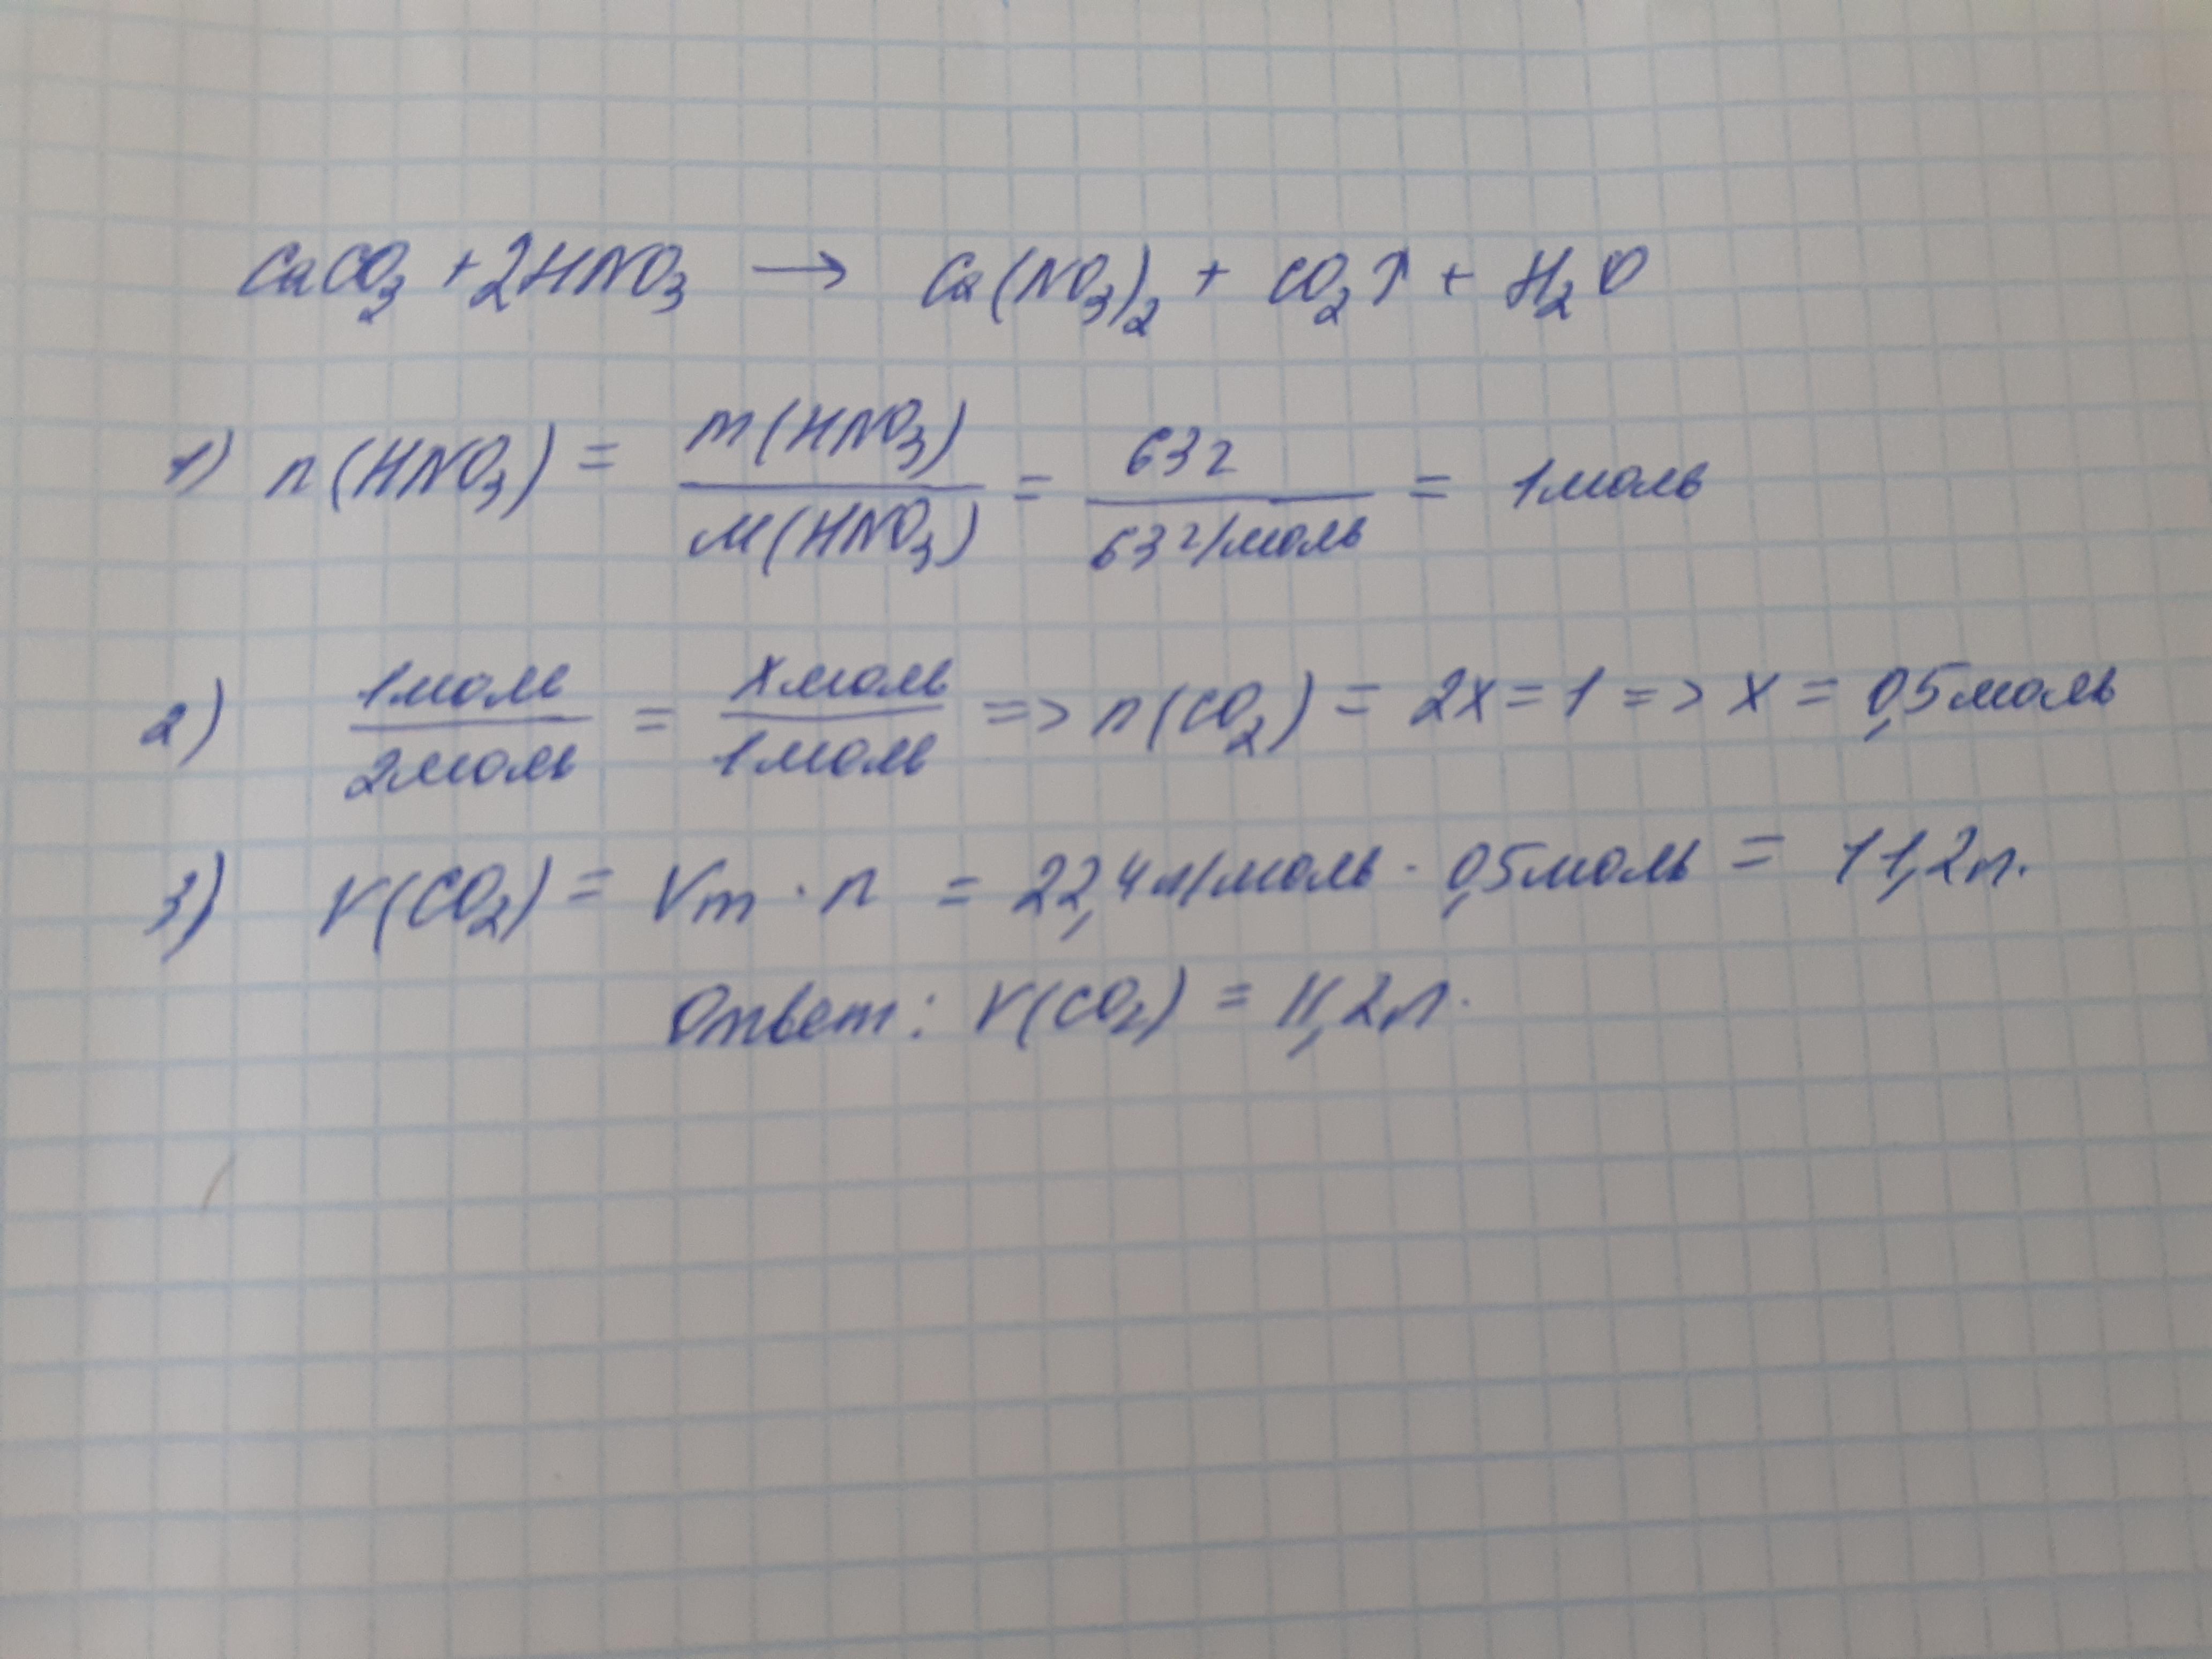 CaCO₃ + 2HNO₃ → Ca(NO₃)₂ + CO₂↑ + H₂O
1) n(HNO₃) = m(HNO₃)/M(HNO₃) = 63г/63г/моль = 1моль
2) 1моль/2моль = xмоль/1моль => n(CO₂) = 2x = 1 => x = 0,5моль
3) V(CO₂) = Vm · n = 22,4л/моль · 0,5моль = 11,2л.
Ответ: V(CO₂) = 11,2л.